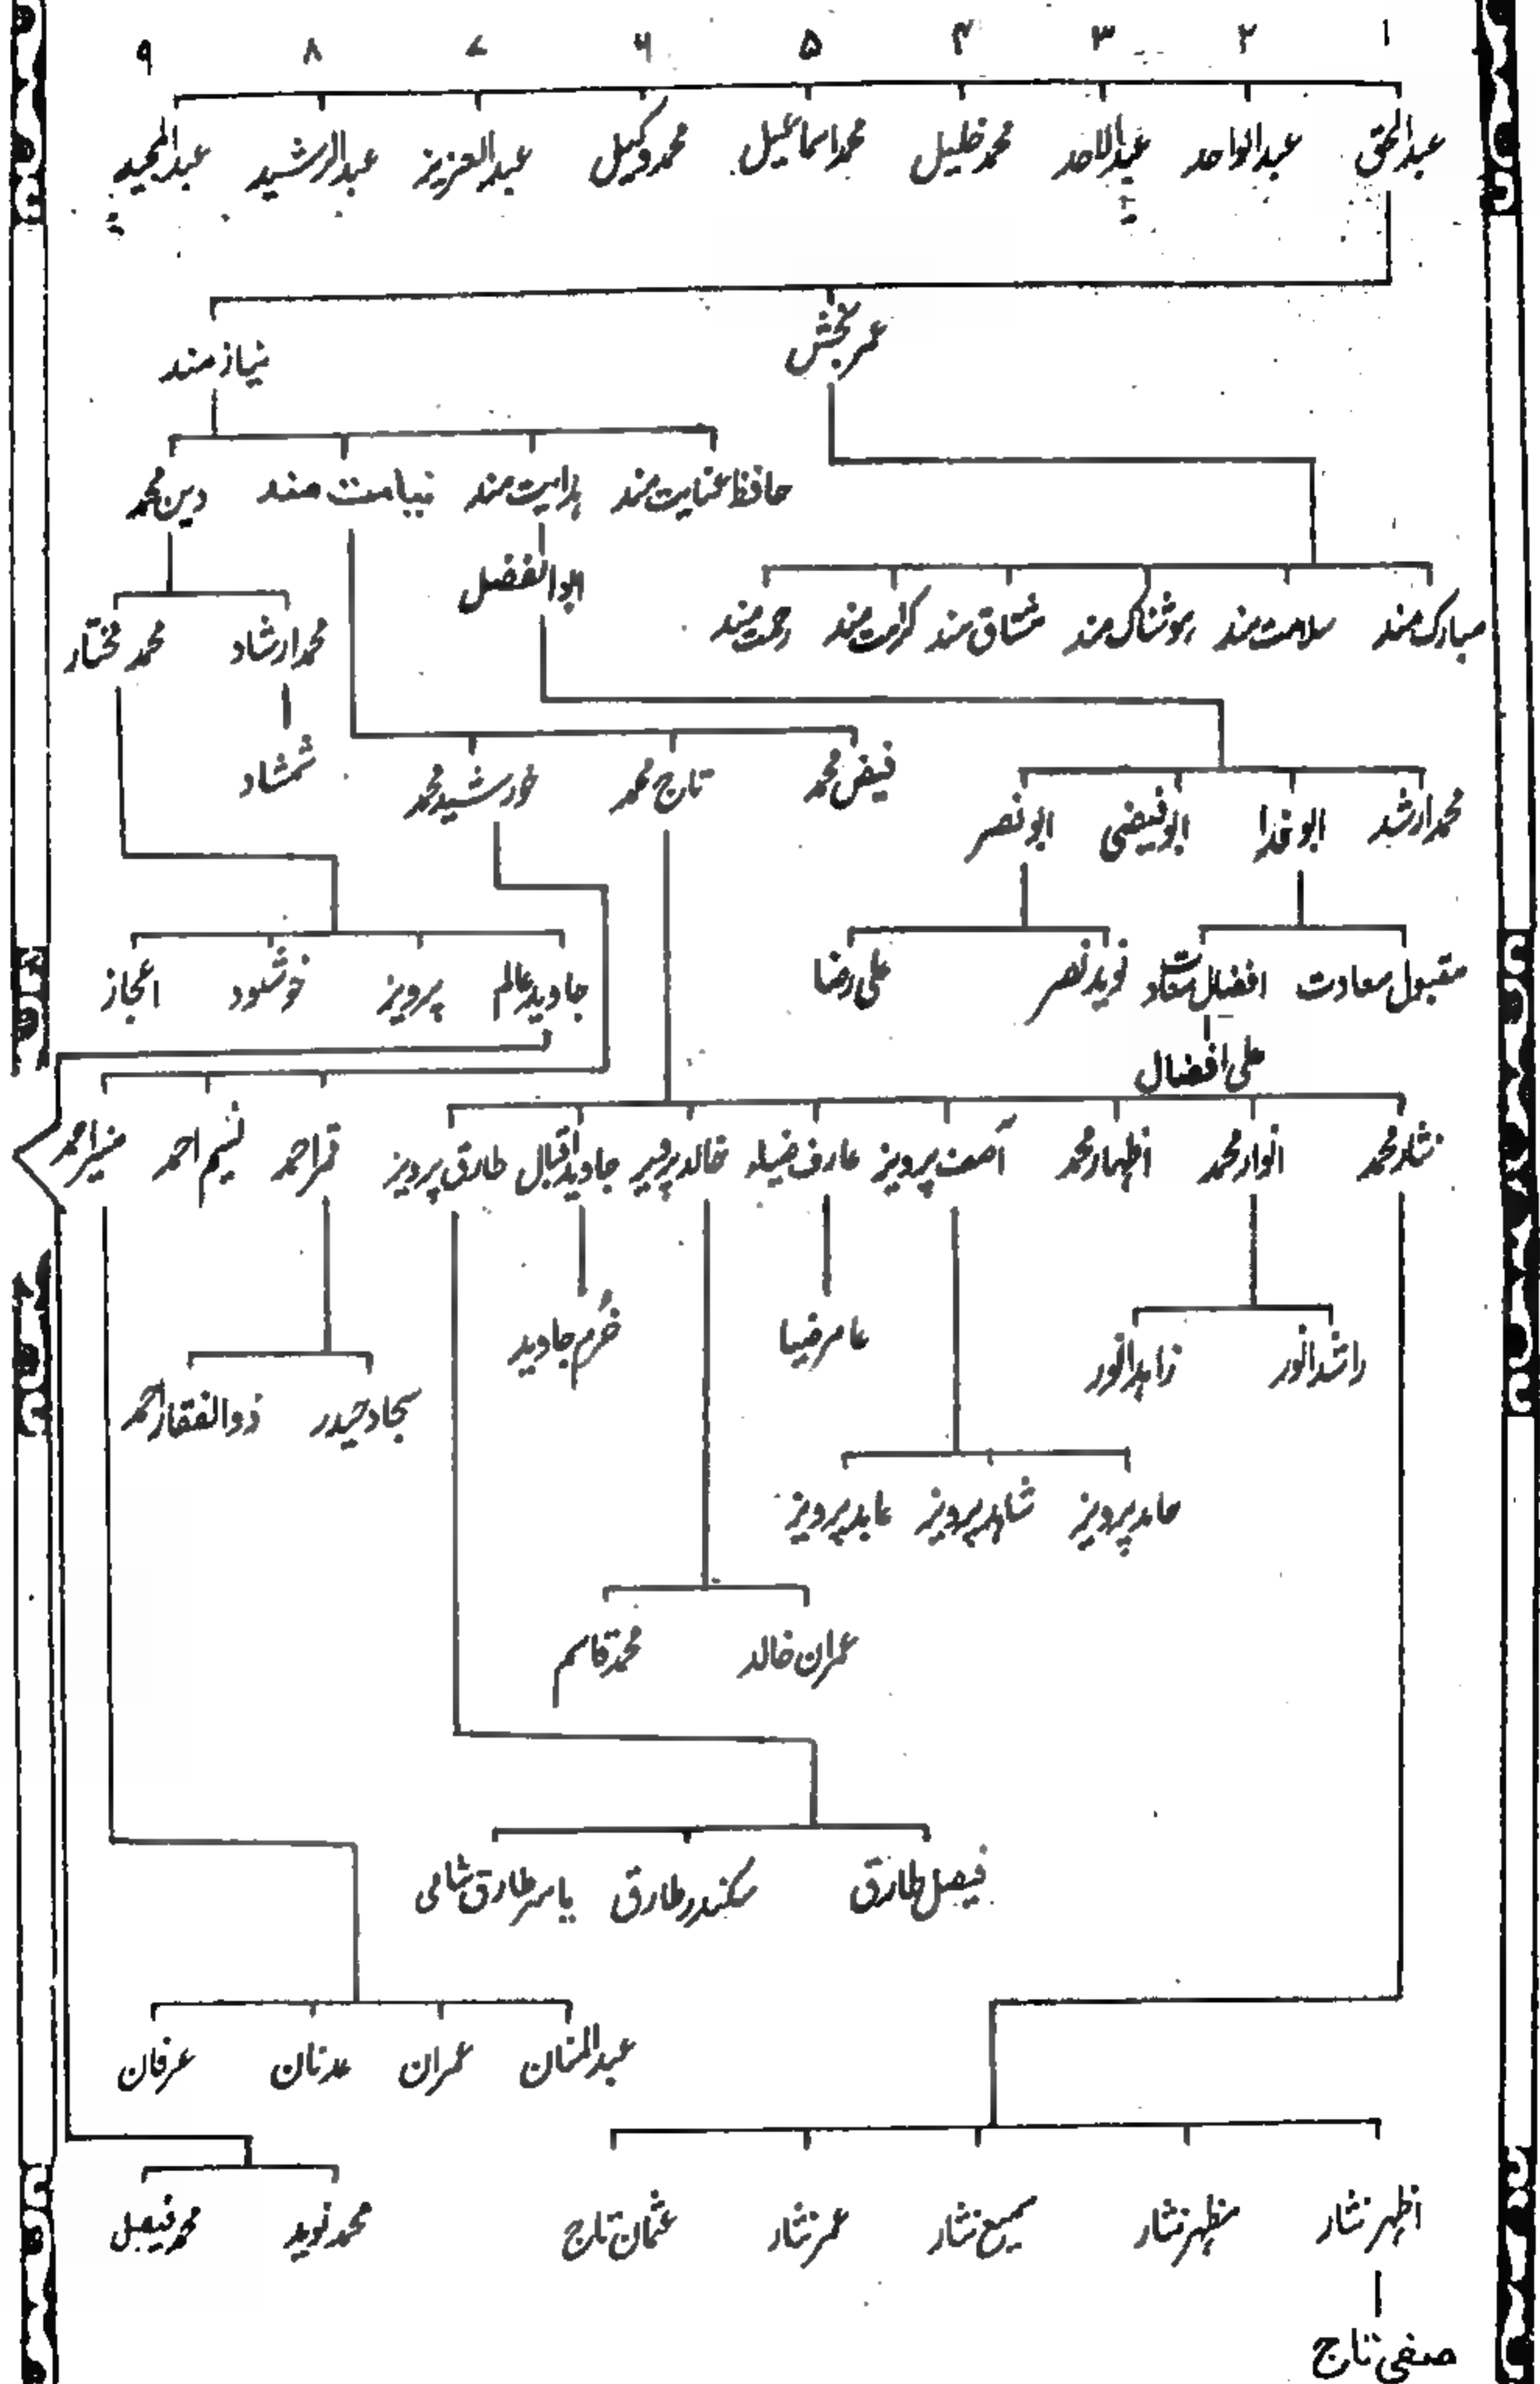 ۱ ۲ ۳ ۴ ۵ ۶ ۷ ۸ ۹
عبدالحق عبدالواحد عبدالاحد محمد خلیل محمد اسماعیل محمد وکیل عبدالعزیز عبدالرشید عبدالمجید
عمر بخش نیاز مند
حافظ عنایت مند ہدایت مند نیابت مند دین محمد
ابوالفضل
مبارک مند سلامت مند روشناک مند مشتاق مند کرامت مند رحمت مند محمد ارشاد محمد مختار
فیض محمد تاج محمد خورشید محمد شمشاد
محمد ارشد ابو فدا ابو فیضی ابو نصر
مقبول سعادت افضال سعادت نوید نصر علی رضا جاوید عالم پرویز خوشنود اعجاز
علی افضال
نثار محمد انوار محمد اظہار محمد آصف پرویز عارف ضیاء خالد پرویز جاوید اقبال طارق پرویز قمر احمد نسیم احمد منیر احمد
راشد انور زاہد انور عامر ضیا خرم جاوید
سجاد حیدر ذوالفقار احمد
حامد پرویز شاہد پرویز عابد پرویز
عمران خالد محمد قاسم
فیصل طارق سکندر طارق یاسر طارق شامی
عبدالمنان عمران عدنان عرفان
اظہر نثار مظہر نثار سمیع نثار عمر نثار عثمان تاج محمد نوید محمد فیصل
صفی تاج